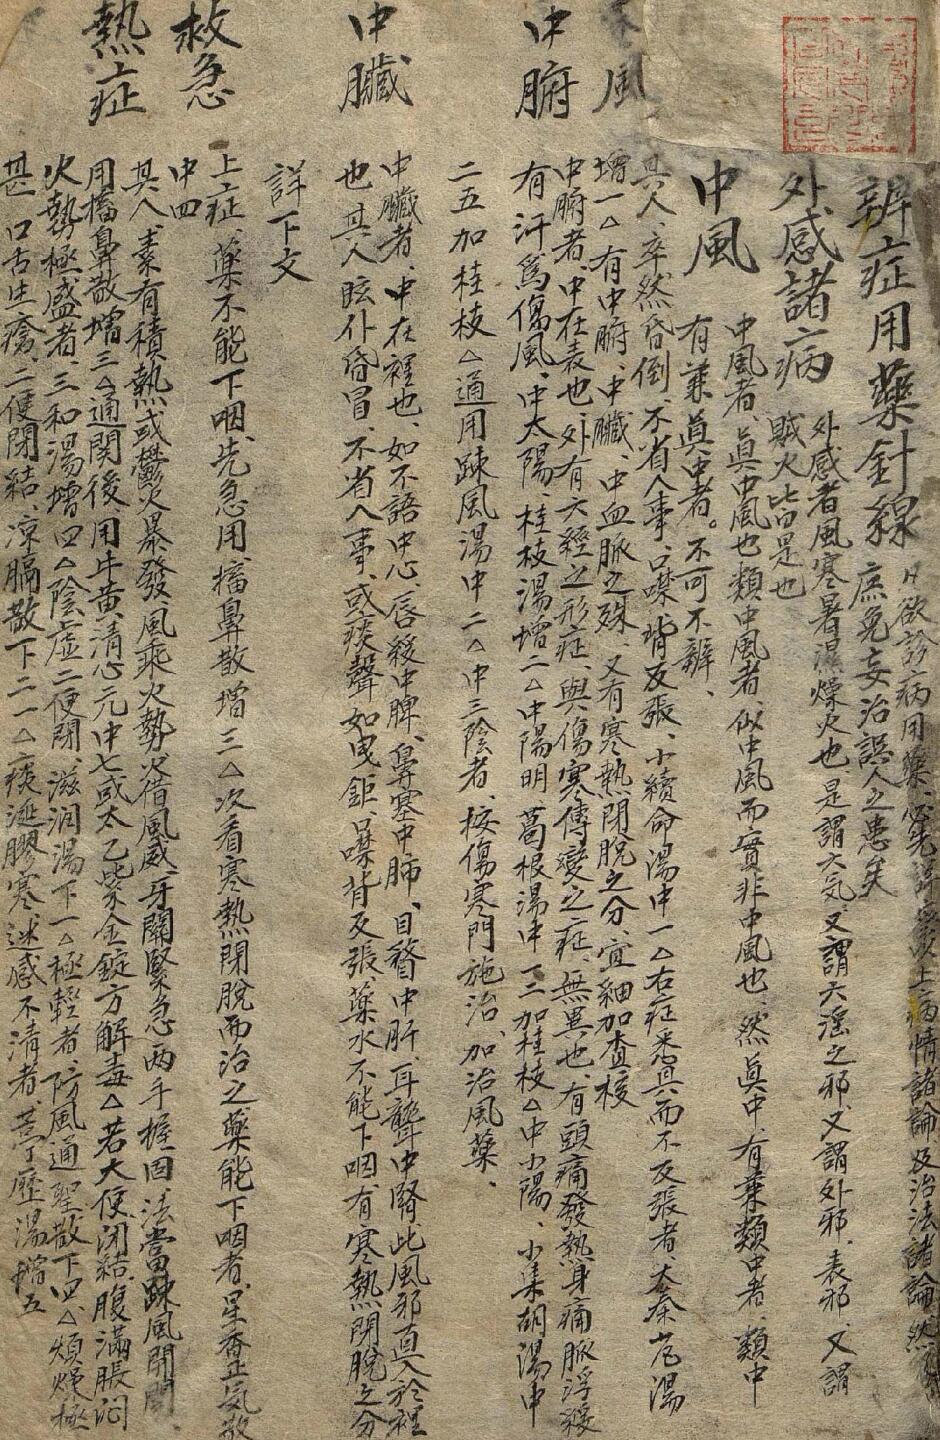 辨症用藥針線 凡欲診病用藥、必先詳察以上病情諸論及治法諸論、然
庶免妄治誤人之患矣
外感諸病 外感者風寒暑濕燥火也、是謂六気、又謂六淫之邪、又謂外邪、表邪、又謂
賊火皆是也
中風 中風者、眞中風也類中風者、似中風而實非中風也、然眞中、有兼類中者、類中
有兼眞中者。不可不辨、
其人、卒然昏倒、不省人事、口噤背反張、小續命湯中一△右症悉具而不反張者、大秦艽湯
風 增一△有中腑、中臟、中血脈之殊、又有寒熱閉脫之分、宜細加查核
中腑 中腑者、中在表也、外有六經之形症、與傷寒傳變之症、無異也、有頭痛發熱身痛脈浮緩
有汗爲傷風、中太陽、桂枝湯增二△中陽明、葛根湯中一二加桂枝△中小陽、小柴胡湯中
二五加桂枝△通用疎風湯中二△中三陰者、按傷寒門施治、加治風藥、
中臟 中臟者、中在裡也、如不語中心、唇緩中脾、鼻塞中肺、目瞀中肝、耳聾中腎此風邪直入於裡
也其人眩仆昏冒、不省人事、或痰聲如曳鉅、口噤背反張藥水不能下咽、有寒熱閉脫之分
詳下文
救急 上症、藥不能下咽、先急用搐鼻散增三△次看寒熱閉脫而治之藥能下咽者、星香正気散
中四
熱症 其人、素有積熱或鬱火暴發、風乘火勢、火借風威、牙關緊急兩手握固、法當疎風開關、
用搐鼻散增三△通関後、用牛黃清心元中七或太乙紫金錠方解毒△若大便閉結、腹滿脹悶
火勢極盛者、三和湯增四△陰虛二便閉、滋潤湯下一△極輕者、防風通聖散下四△煩燥極
甚口舌生瘡、二便閉結、凉膈散下二一△痰涎膠塞、迷惑不清者、葶藶湯增五